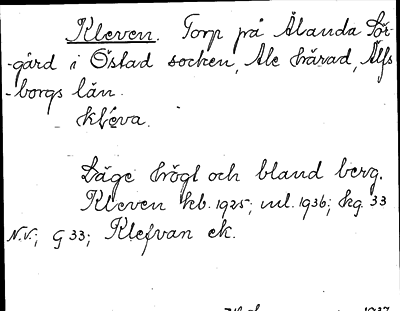 Kleven. Torp på Ålanda Sör-
-gård i Östad socken, Ale härad, Älfs
-borgs län.
klëva.
Läge högt och bland berg.
Kleven kb. 1925; ml. 1936; kg 33
N.V.; G 33; Klefvan ek.
1937